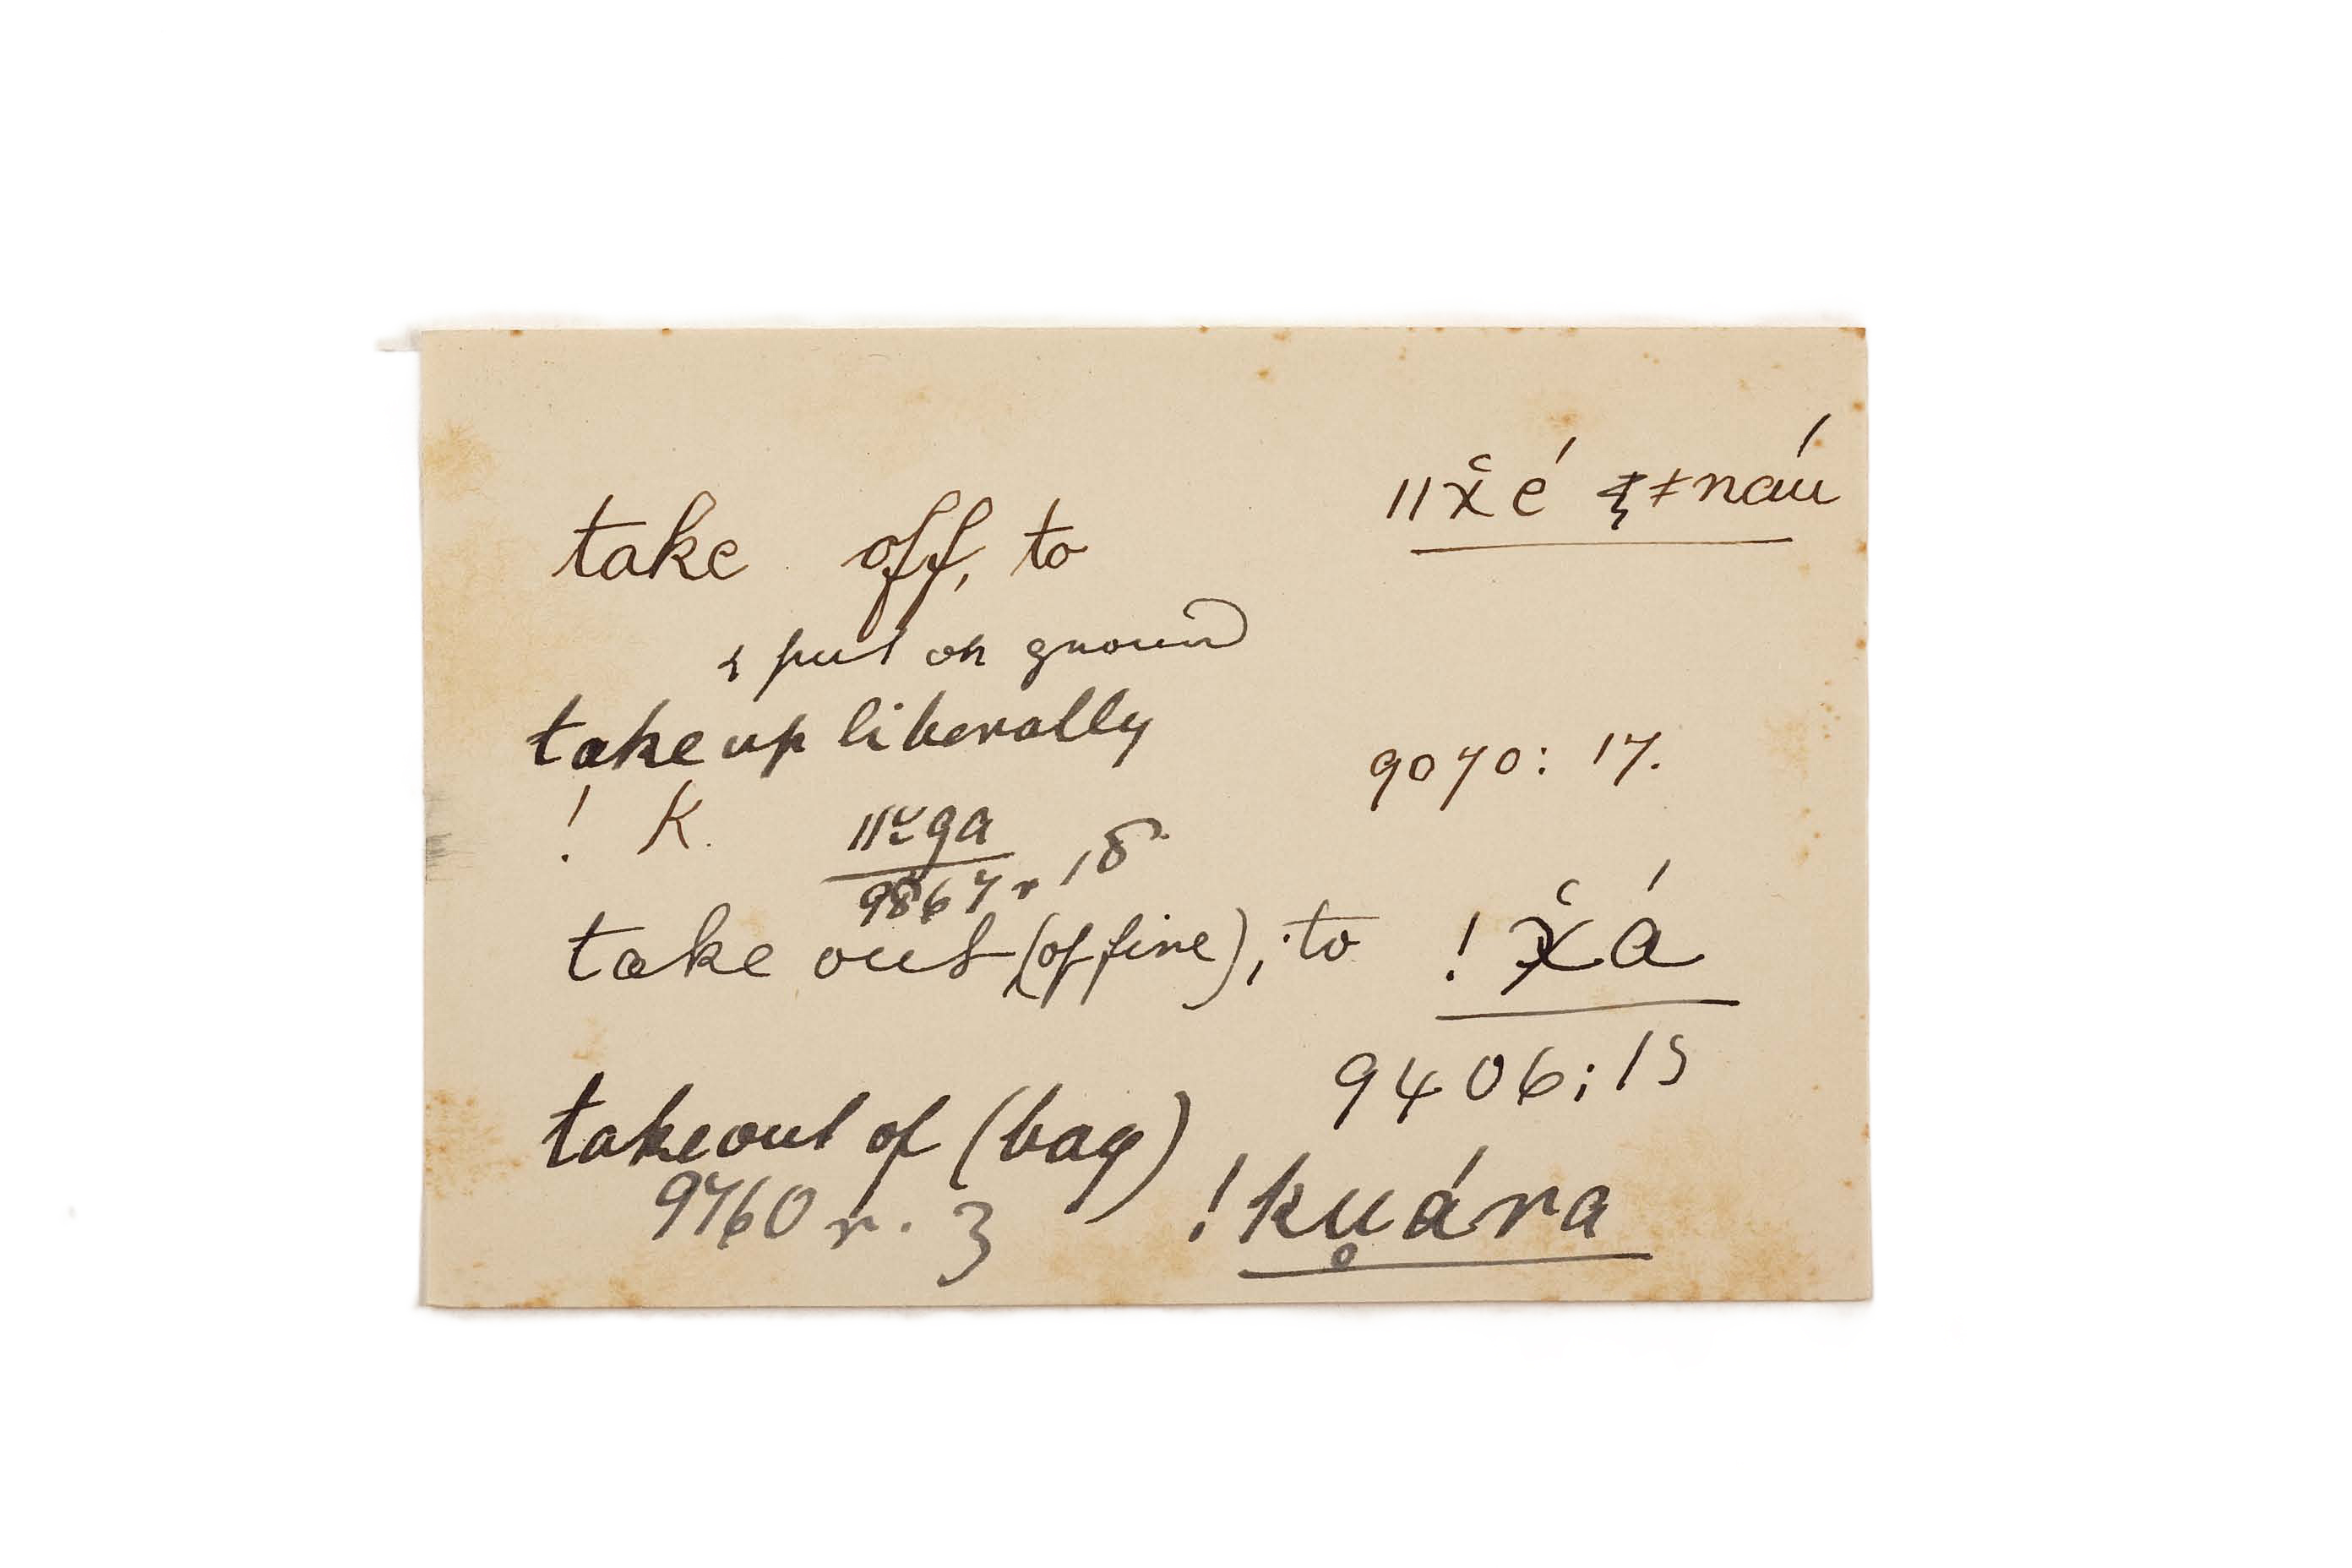 ǁχ̌é ⁊ ǂnáu
take off, to
& put on ground
take up liberally
9070: 17.
! K. ǁ͠ga
9867 r, 18
take out (of fire), to ! χ̌á
9406; 15
take out of (bag)
9760 r. 3 !kṷára